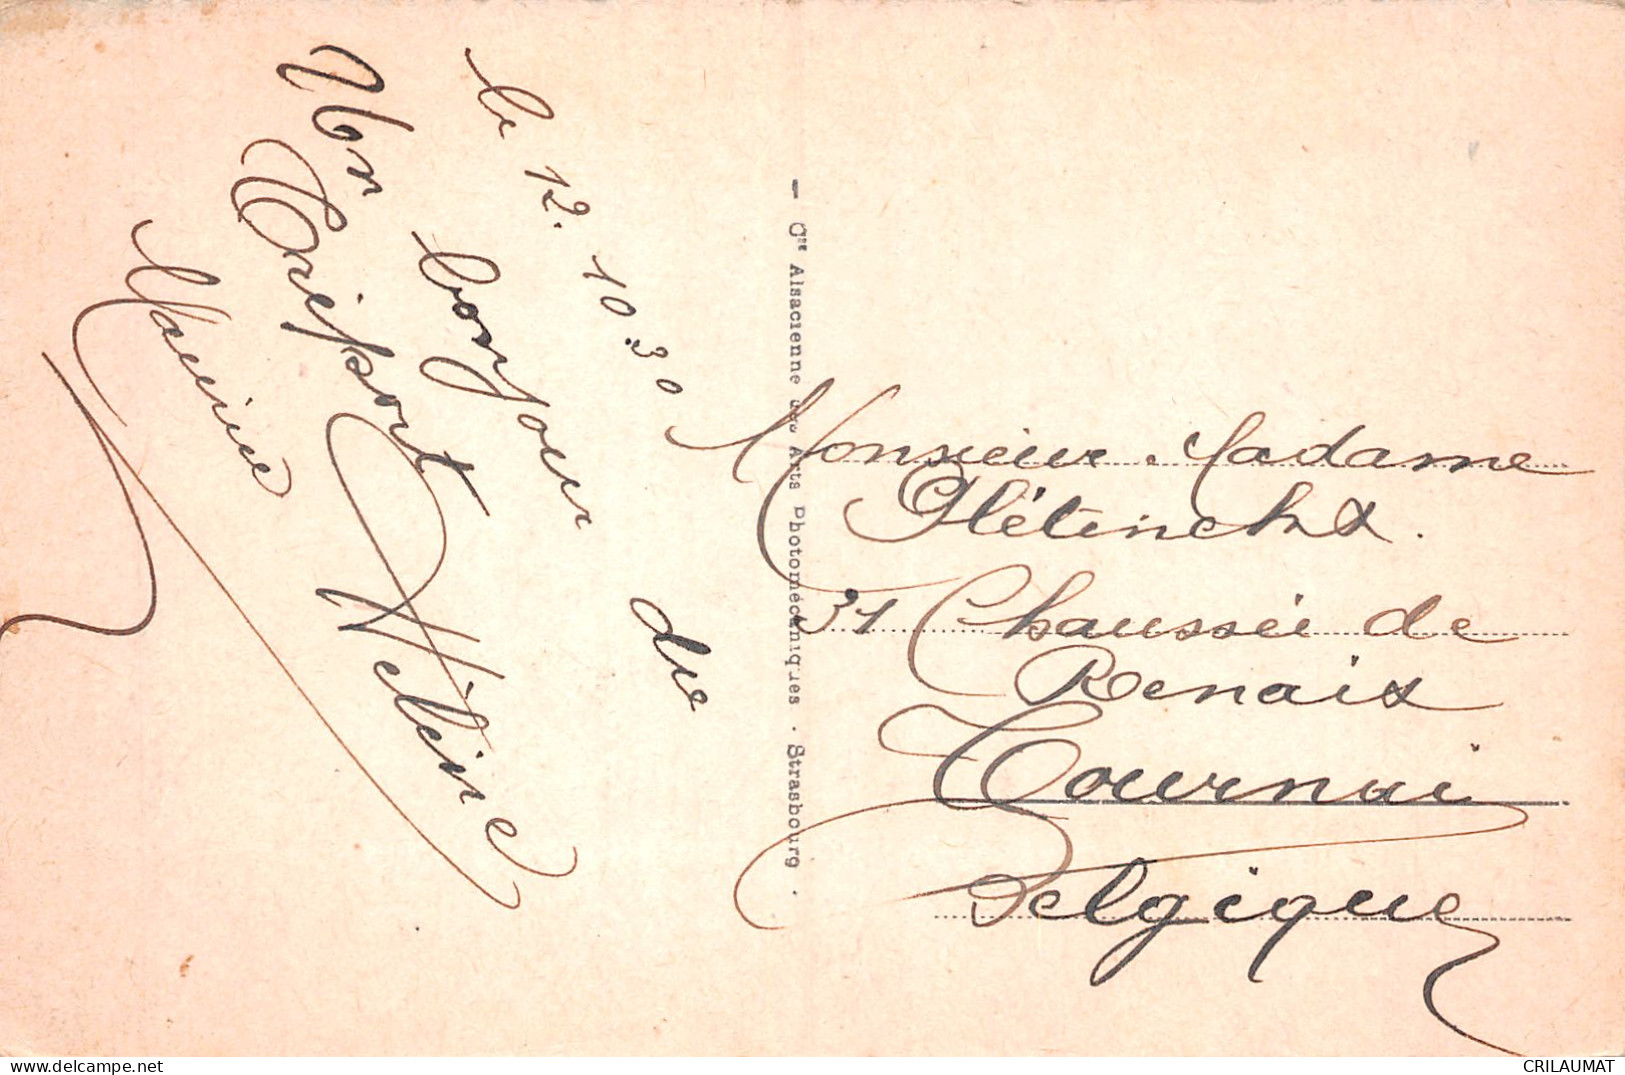 le 12. 10. 30
Un bonjour du
Tréport
Maxime Hélène
— Cie Alsacienne des Arts Photomécaniques · Strasbourg ·
Monsieur Madame
Plétinckx.
31 Chaussée de
Renaix
Tournai
Belgique
https://www.delcampe.net
CRILAUMAT